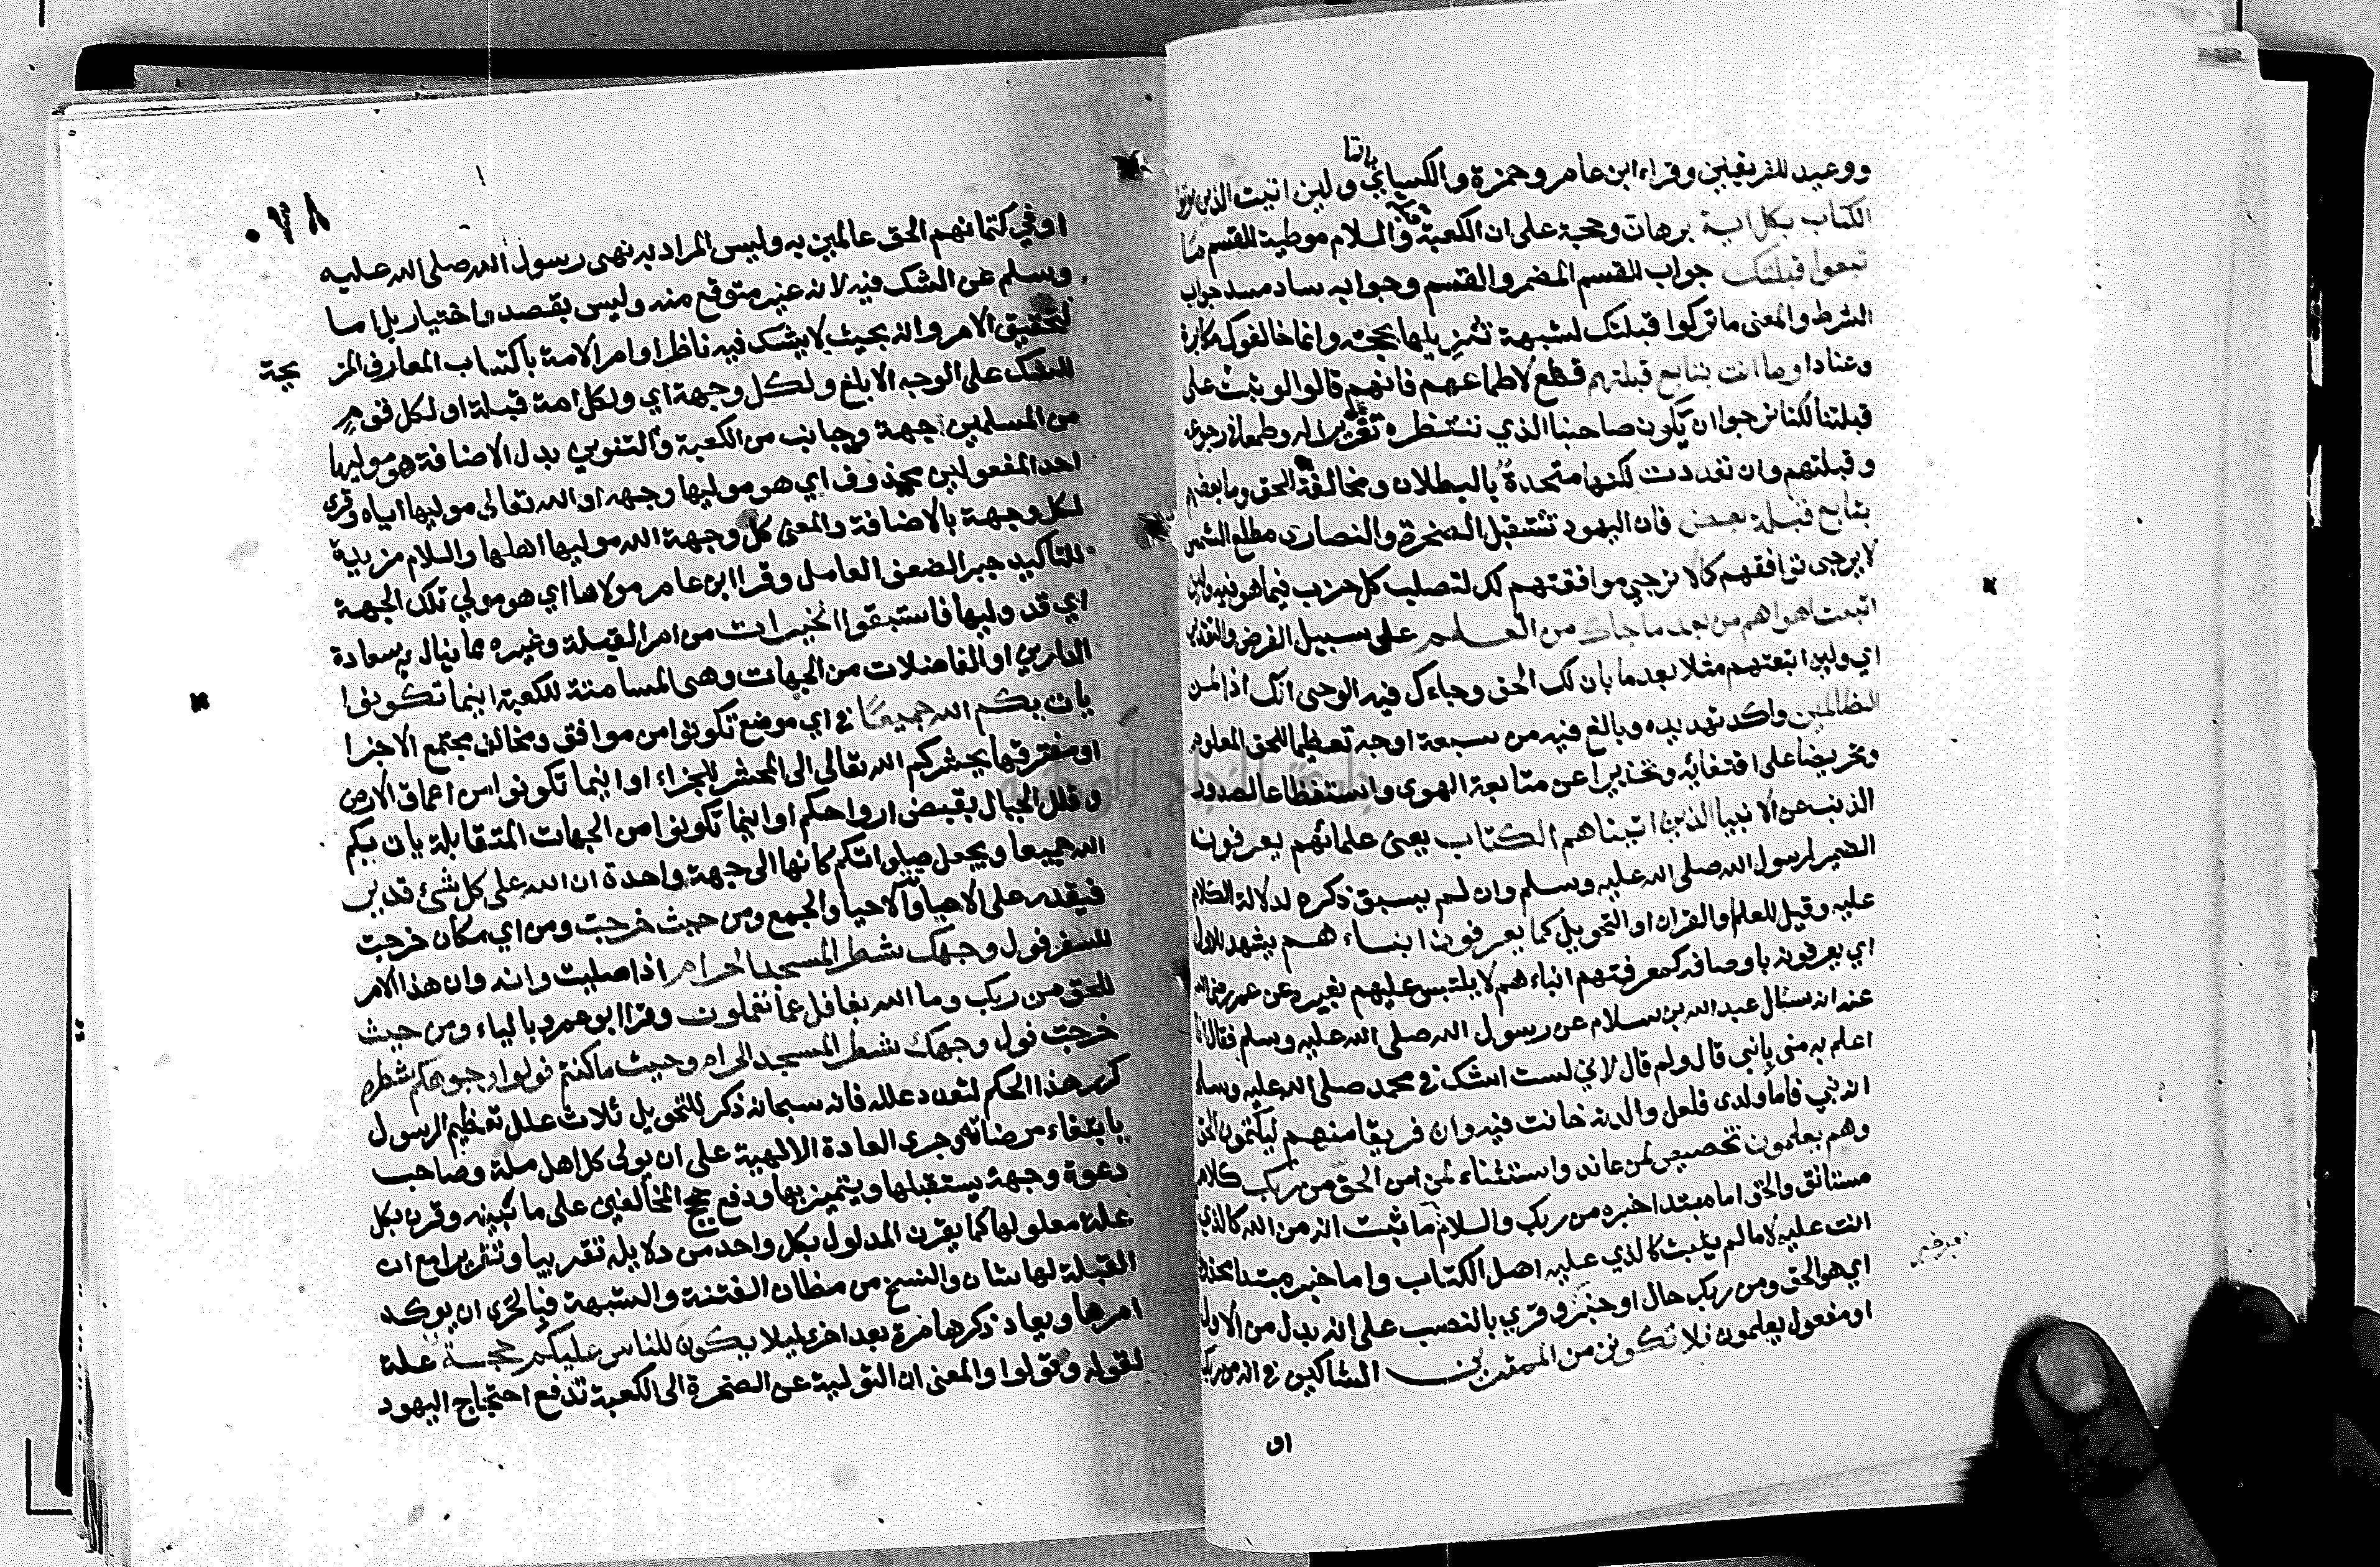 ووعيد للفريقين وقراء ابن عامر وحمزة والكسائي بالتا ولين اتيت الذين اوتوا
الكتاب بكل اية برهان وحجة على ان الكعبة قبلة والسلام موطية للقسم ما
تبعوا قبلتك جواب للقسم المضمر والقسم وجوابه ساد مسد جواب
الشرط والمعنى ما تركوا قبلتك لشبهة تزيلها بحجة وانما خالفوك مكابرة
وعنادا وما انت بتابع قبلتهم قطع لاطماعهم فانهم قالوا لو ثبت على
قبلتنا لكنا نرجوا ان يكون صاحبنا الذي ننتظره تغريرا له وطمعا في رجوعه
وقبلتهم وان تعددت لكنها متحدة بالبطلان ومخالفة الحق وما بعضهم
بتابع قبلة بعض فان اليهود تستقبل الصخرة والنصارى مطلع الشمس
لا يرجى توافقهم كما لا يرجى موافقتهم لك لتصلب كل حزب فيما هو فيه ولين
اتبعت اهواهم من بعد ما جاك من العلم على سبيل الفرض والتقدير
اي ولين اتبعتهم مثلا بعد ما بان لك الحق وجاءك فيه الوحى انك اذا لمن
الظالمين واكد تهديده وبالغ فيه من سبعة اوجه تعظيما للحق المعلوم
وتحريضا على اقتفائه وتحذيرا عن متابعة الهوى واستفظاعا لصدور
الذنب عن الانبيا الذين اتيناهم الكتاب يعنى علمائهم يعرفون
الضمير لرسول الله صلى الله عليه وسلم وان لم يسبق ذكره لدلالة الكلام
عليه وقيل للعلم والقران او التحويل كما يعرفون ابناء هم يشهد للاول
اي يعرفونه باوصافه كمعرفتهم ابناء هم لا يلتبس عليهم بغيره عن عمر رضي الله
عنه انه سئال عبد الله بن سلام عن رسول الله صلى الله عليه وسلم فقال انا
اعلم به منى بابني قال ولم قال لاني لست اشك في محمد صلى الله عليه وسلم
انه نبي فاما ولدى فلعل والدته خانت فيه وان فريقا منهم ليكتمون الحق
وهم يعلمون تخصيص لمن عاند واستثناء لمن امن الحق من ربك كلام
مستانق والحق اما مبتدا خبره من ربك والسلام ما ثبت انه من الله كالذي
انت عليه لا ما لم يثبت كالذي عليه اهل الكتاب واما خبر مبتدا محذوف
اي هو الحق ومن ربك حال او خبر وقري بالنصب على انه بدل من الاول
او مفعول يعلمون فلا تكونن من الممترين الشاكين في انه من ربك
او
او في كتمانهم الحق عالمين به وليس المراد به نهى رسول الله صلى الله عليه
وسلم عن الشك فيه لانه غير متوقع منه وليس بقصد واختيار بل اما
لتحقيق الامر وانه بحيث لا يشك فيه ناظر او امر الامة باكتساب المعارف المز يحة
للشك على الوجه الابلغ ولكل وجهة اي ولكل امة قبلة او لكل قوم
من المسلمين جهة وجانب من الكعبة والتنوين بدل الاضافة هو موليها
احد المفعولين محذوف اي هو موليها وجهه او الله تعالى موليها اياه وقرى
لكل وجهة بالاضافة والمعنى كل وجهة الله موليها اهلها والسلام مزيدة
للتاكيد جبرا لضعف العامل وقرا ابن عامر مولاها اي هو مولي تلك الجهة
اي قد وليها فاستبقوا الخيرات من امر القبلة وغيره مما ينال به سعادة
الدارين او الفاضلات من الجهات وهى المسامتة للكعبة اينما تكونوا
يات بكم الله جميعا في اي موضع تكونوا من موافق ومخالف مجتمع الاجزا
او مفترقها يحشركم الله تعالى الى المحشر للجزاء او اينما تكونوا من اعماق الارض
وقلل الجبال يقبض ارواحكم او اينما تكونوا من الجهات المتقابلة يات بكم
الله جميعا ويجعل صلواتكم كانها الى جهة واحدة ان الله على كل شئ قدير
فيقدر على الاحيا والاحيا والجمع ومن حيث خرجت ومن اي مكان خرجت
للسفر فول وجهك شطر المسجد الحرام اذا صليت وانه وان هذا الامر
للحق من ربك وما الله بغافل عما تعملون وقرا ابو عمرو بالياء ومن حيث
خرجت فول وجهك شطر المسجد الحرام وحيث ما كنتم فولوا وجوهكم شطره
كرر هذا الحكم لتعدد علله فانه سبحانه ذكر للتحويل ثلاث علل تعظيم الرسول
بابتغاء مرضاته وجرى العادة الالهية على ان يولى كل اهل ملة وصاحب
دعوة وجهة يستقبلها ويتميز بها ودفع حجج المخالفين على ما نبينه وقرن بكل
علة معلولها كما يقرن المدلول بكل واحد من دلايله تقريبا وتقريرا مع ان
القبلة لها شان والنسخ من مظان الفتنة والشبهة فبالحرى ان يوكد
امرها ويعاد ذكرها مرة بعد اخرى ليلا يكون للناس عليكم حجة علة
لقوله وفولوا والمعنى ان التولية عن الصخرة الى الكعبة تدفع احتجاج اليهود